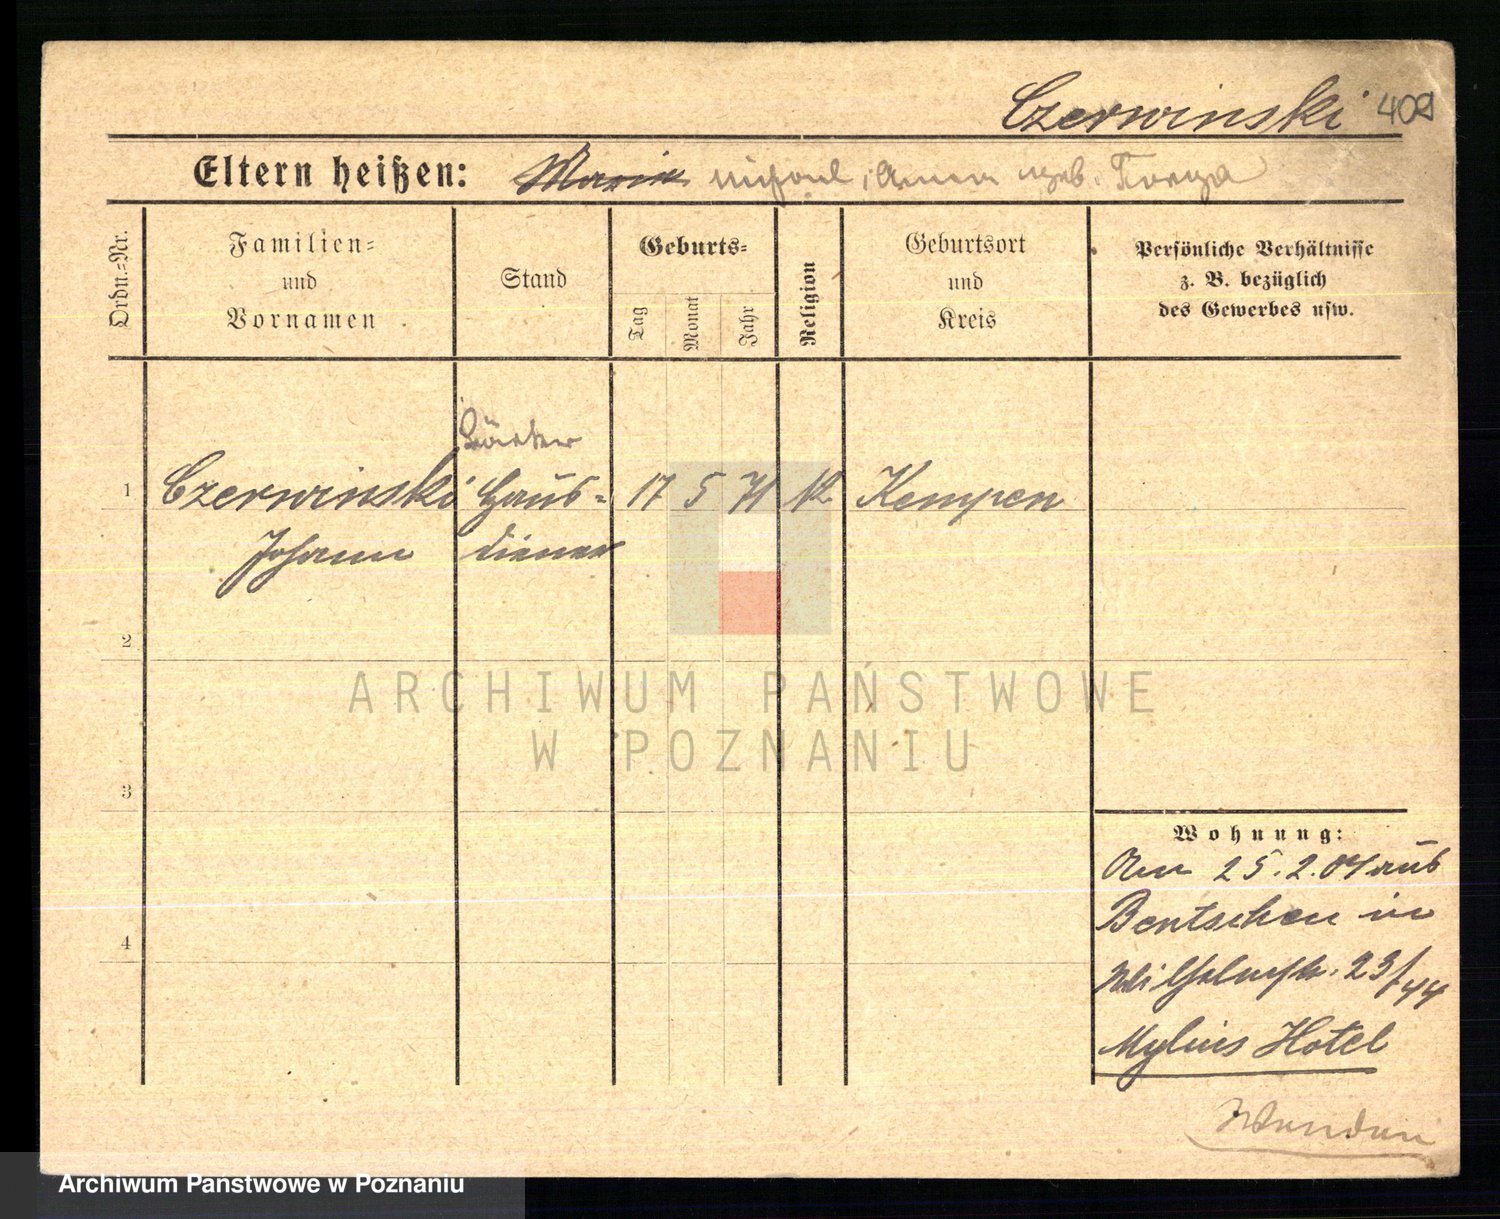 Czerwinski 409
Eltern heißen: Maria Michael, Anna geb.
Ordn.=Nr.
Familien=
und
Vornamen
Stand
Geburts=
Tag
Monat
Jahr
Religion
Geburtsort
und
Kreis
Persönliche Verhältnisse
z. B. bezüglich
des Gewerbes usw.
1
Czerwinski
Johann
Haus=
diener
17 5 71
Kempen
2
3
4
Wohnung:
Am 25.2.04 aus
Bentschen in
Wilhelmstr. 23/44
Mylius Hotel
Wenden
ARCHIWUM PAŃSTWOWE
W POZNANIU
Archiwum Państwowe w Poznaniu